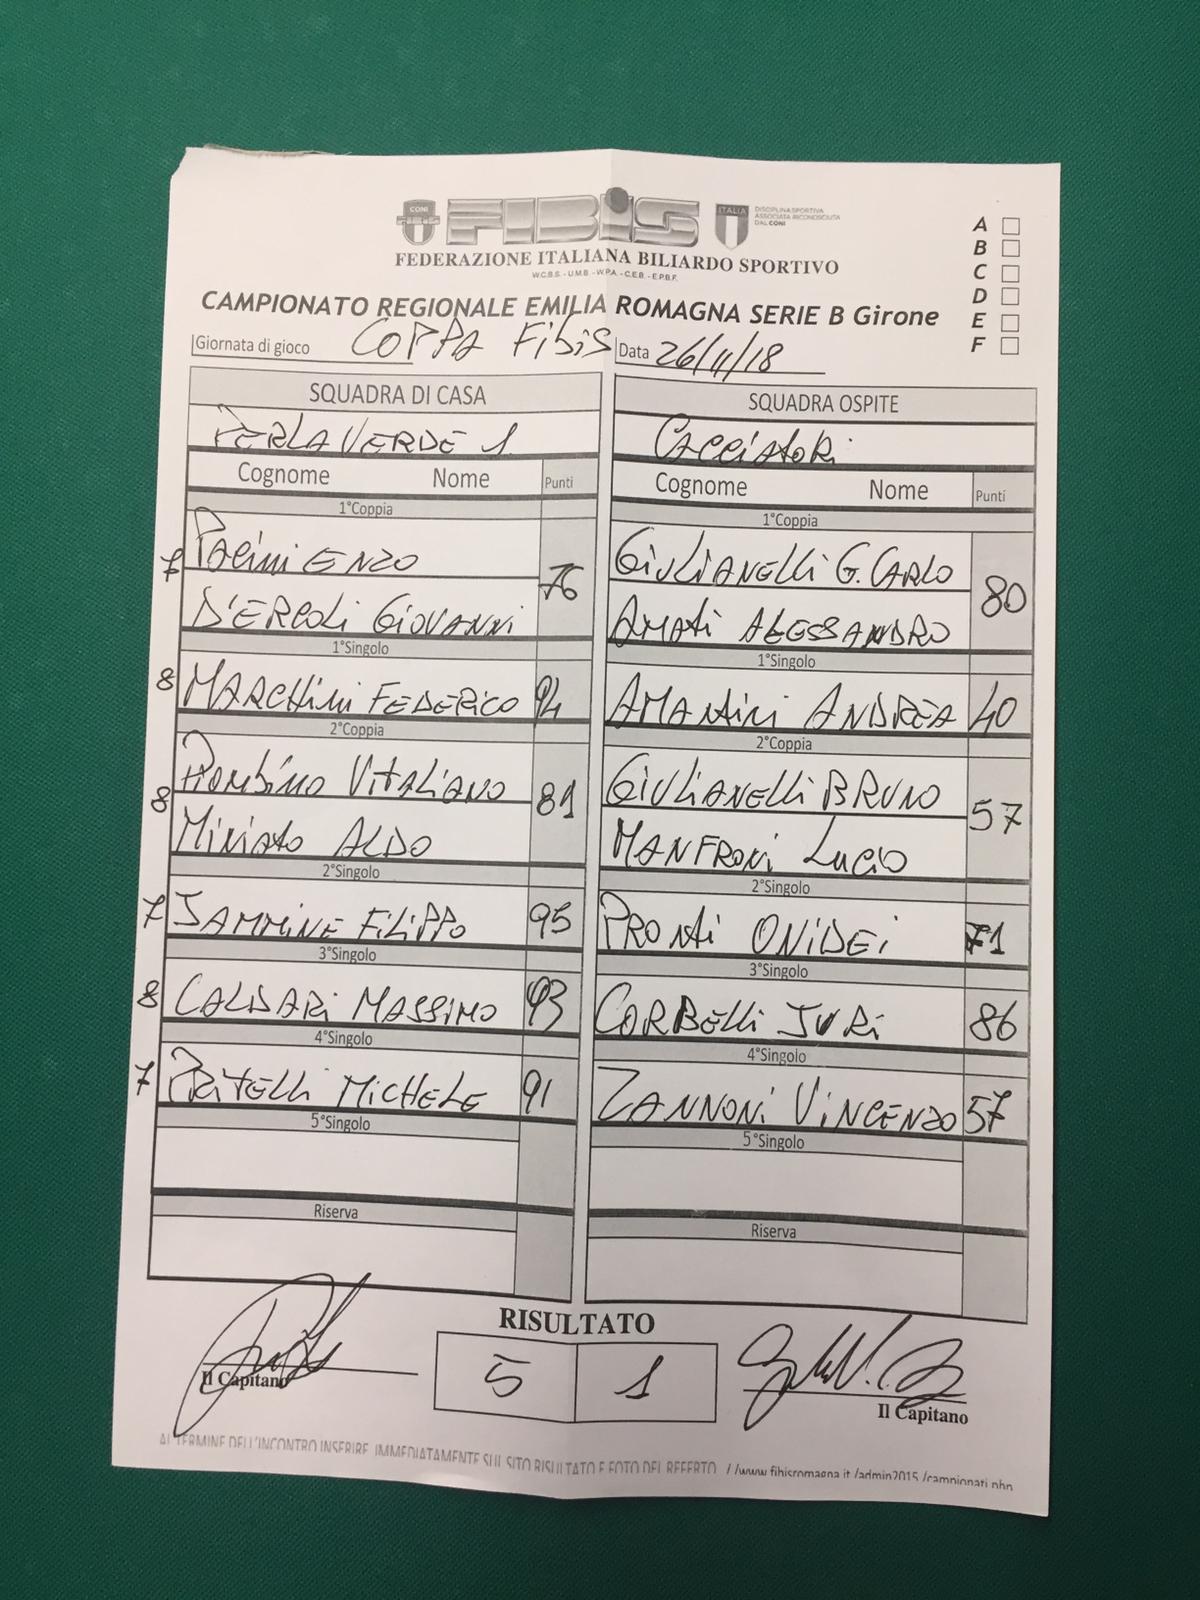 CONI
FIBIS
ITALIA
DISCIPLINA SPORTIVA
ASSOCIATA RICONOSCIUTA
DAL CONI
FEDERAZIONE ITALIANA BILIARDO SPORTIVO
W.C.B.S. - U.M.B - W.P.A. - C.E.B. - E.P.B.F.
CAMPIONATO REGIONALE EMILIA ROMAGNA SERIE B Girone
A
B
C
D
E
F
Giornata di gioco COPPA FibiS Data 26/11/18
SQUADRA DI CASA SQUADRA OSPITE
PERLAVERDE 1 CACCIATORi
Cognome Nome Punti Cognome Nome Punti
1°Coppia 1°Coppia
7 PACini ENZO 76 GiULiANELLi G. CARLO 80
D'ERCOLi GiOVANNi AMATi ALESSANDRO
1°Singolo 1°Singolo
8 MARCHiNi FEDERiCO 94 AMANTiNi ANDREA 40
2°Coppia 2°Coppia
8 PiOMBiNO ViTALiANO 81 GiULiANELLi BRUNO 57
MiNiATO ALDO MANFRONi LUCiO
2°Singolo 2°Singolo
7 JAMMiNE FiLiPPO 95 PRONTi ONiDEi 71
3°Singolo 3°Singolo
8 CALDARi MASSiMO 93 CORBELLi JURi 86
4°Singolo 4°Singolo
7 PRiTELLi MiCHELE 91 ZANNONi ViNCENZO 57
5°Singolo 5°Singolo
Riserva Riserva
RISULTATO
5 1
Il Capitano Il Capitano
AL TERMINE DELL'INCONTRO INSERIRE IMMEDIATAMENTE SUL SITO RISULTATO E FOTO DEL REFERTO //www.fibisromagna.it/admin2015/campionati.php